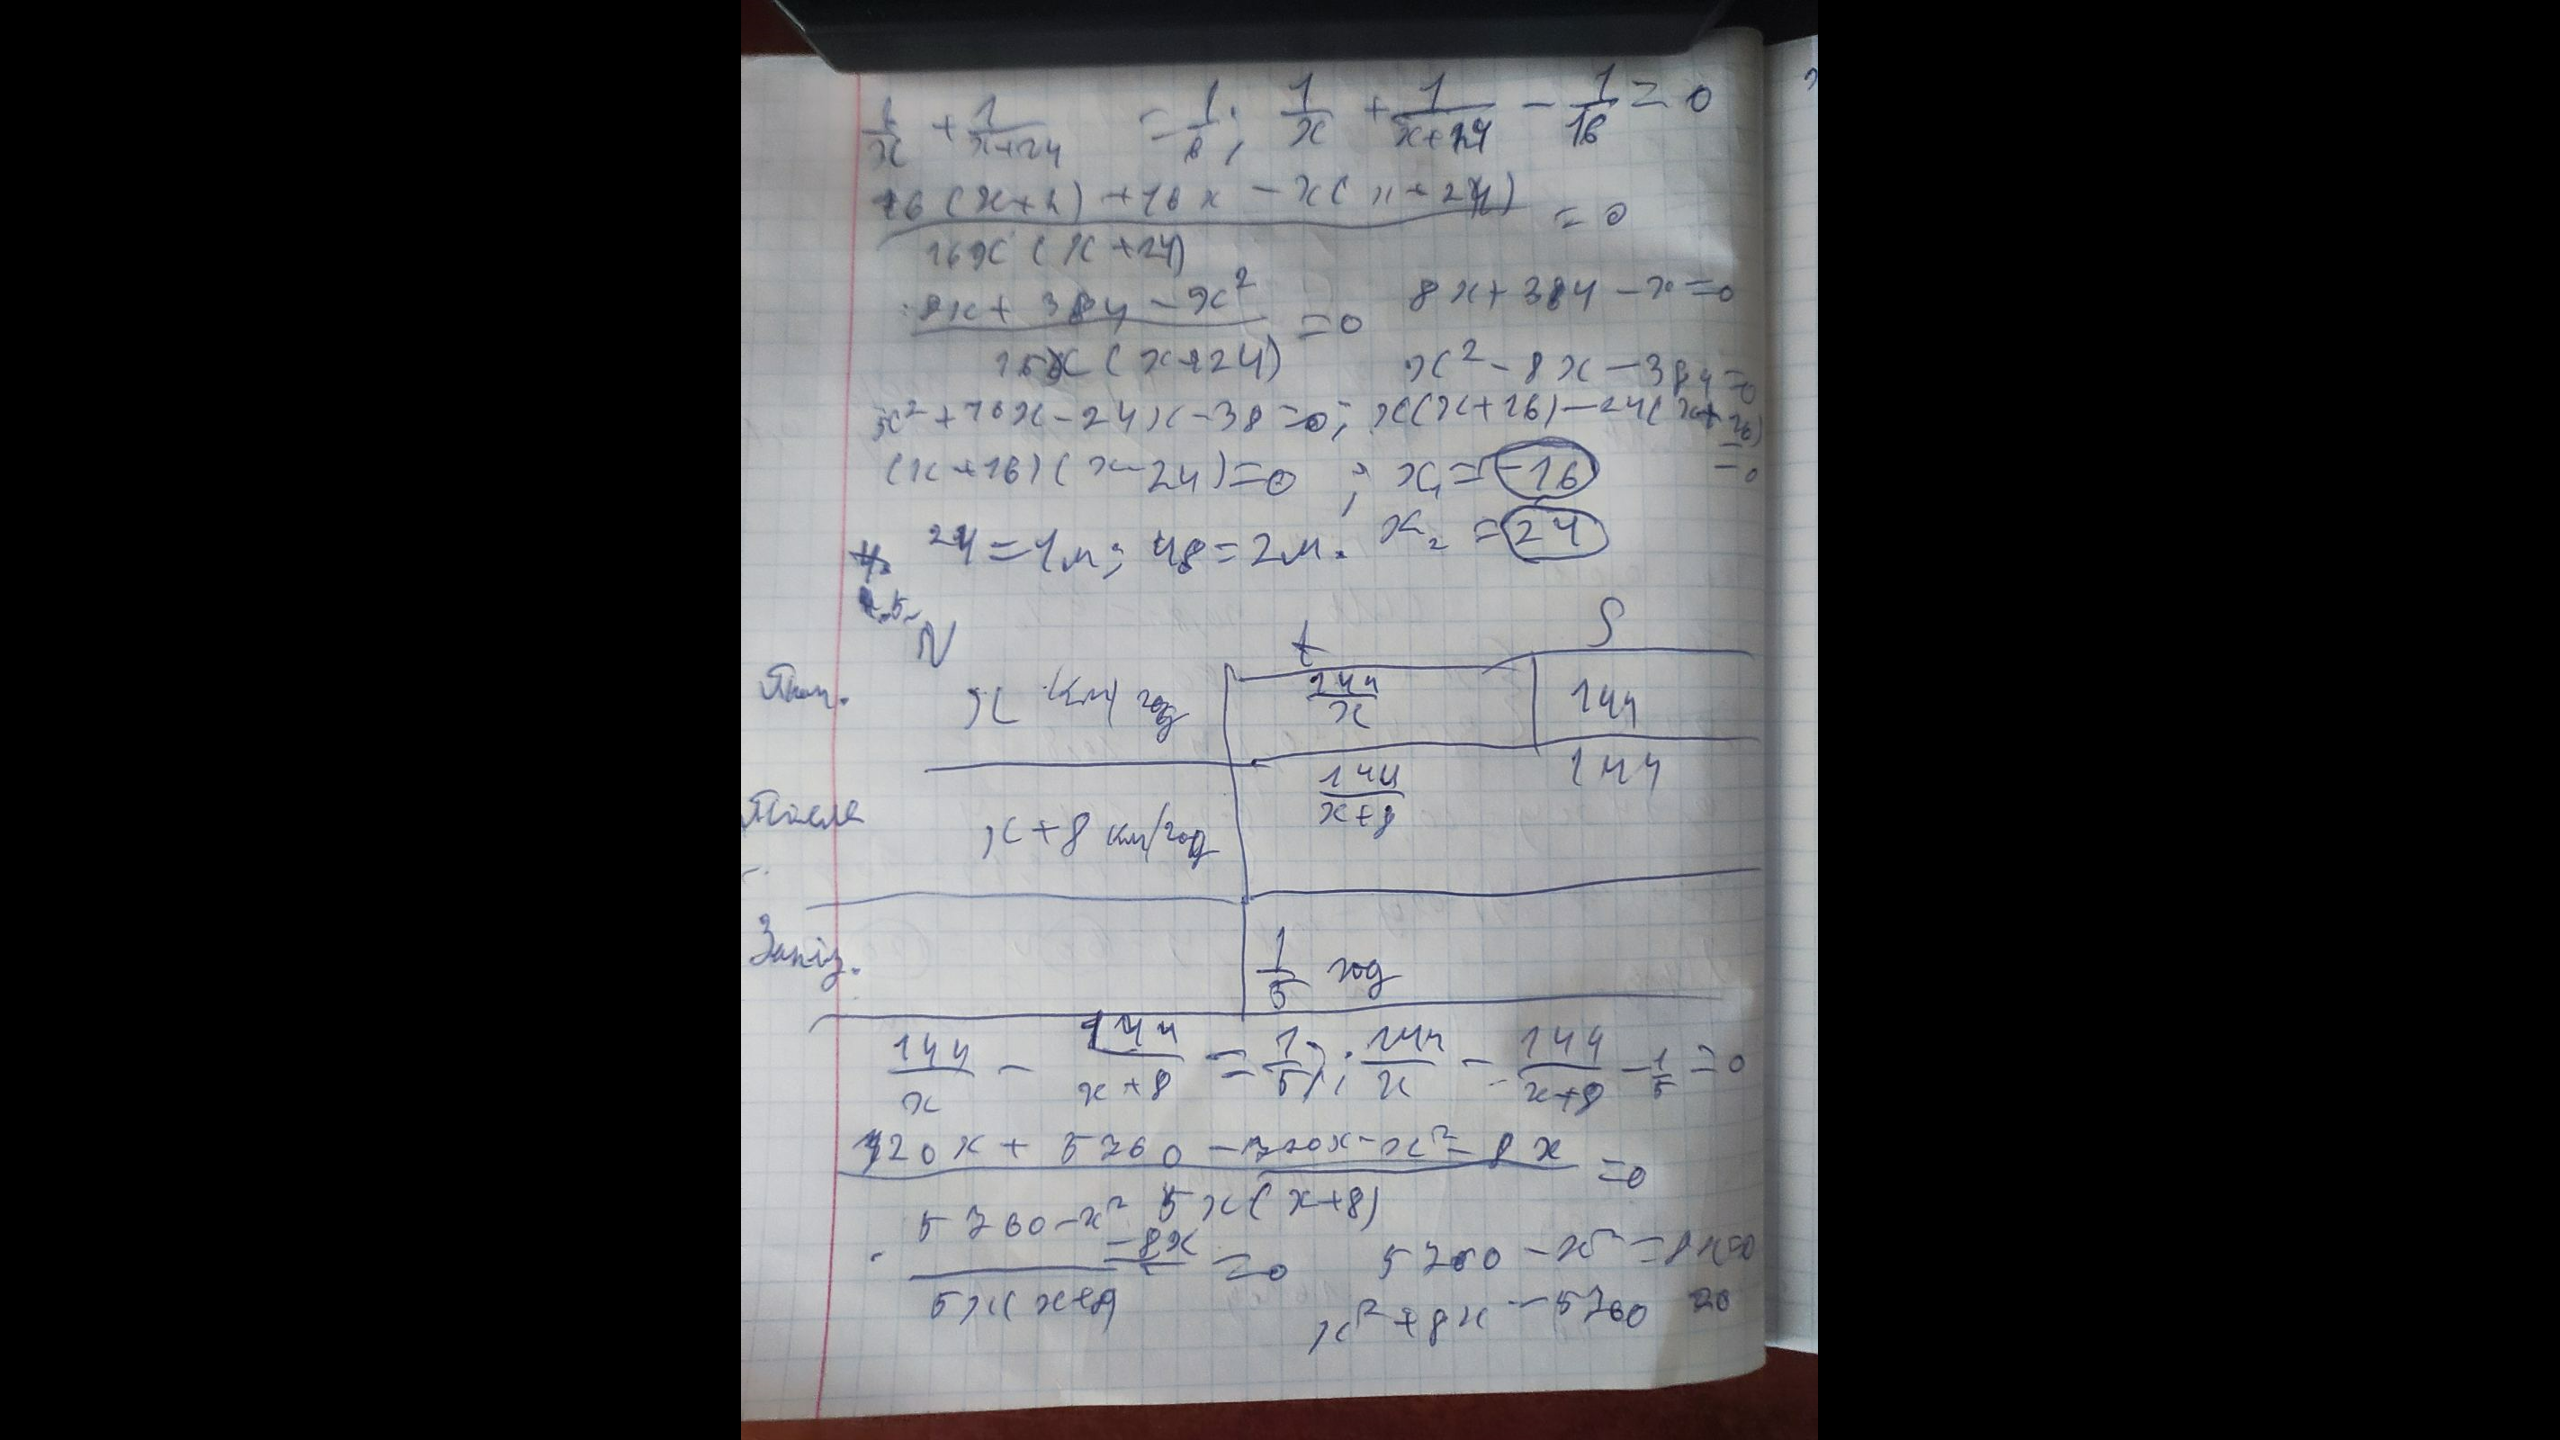 1/x + 1/(x+24) = 1/8; 1/x + 1/(x+24) - 1/16 = 0
(16(x+2) + 16x - x(x+24)) / (16x(x+24)) = 0
(8x + 384 - x²) / (16x(x+24)) = 0   8x + 384 - x = 0
x² - 8x - 384 = 0
x² + 16x - 24x - 38 = 0; x(x+16) - 24(x+16) = 0
(x+16)(x-24) = 0; x₁ = -16
24 = 1м; 48 = 2м. x₂ = 24
5.
V t S
x км/год 144/x 144
После x+8 км/год 144/(x+8) 144
Запіз. 1/5 год
144/x - 144/(x+8) = 1/5; 144/x - 144/(x+8) - 1/5 = 0
(720x + 5760 - 720x - x² - 8x) / (5x(x+8)) = 0
(5760 - x² - 8x) / (5x(x+8)) = 0   5760 - x² - 8x = 0
x² + 8x - 5760 = 0